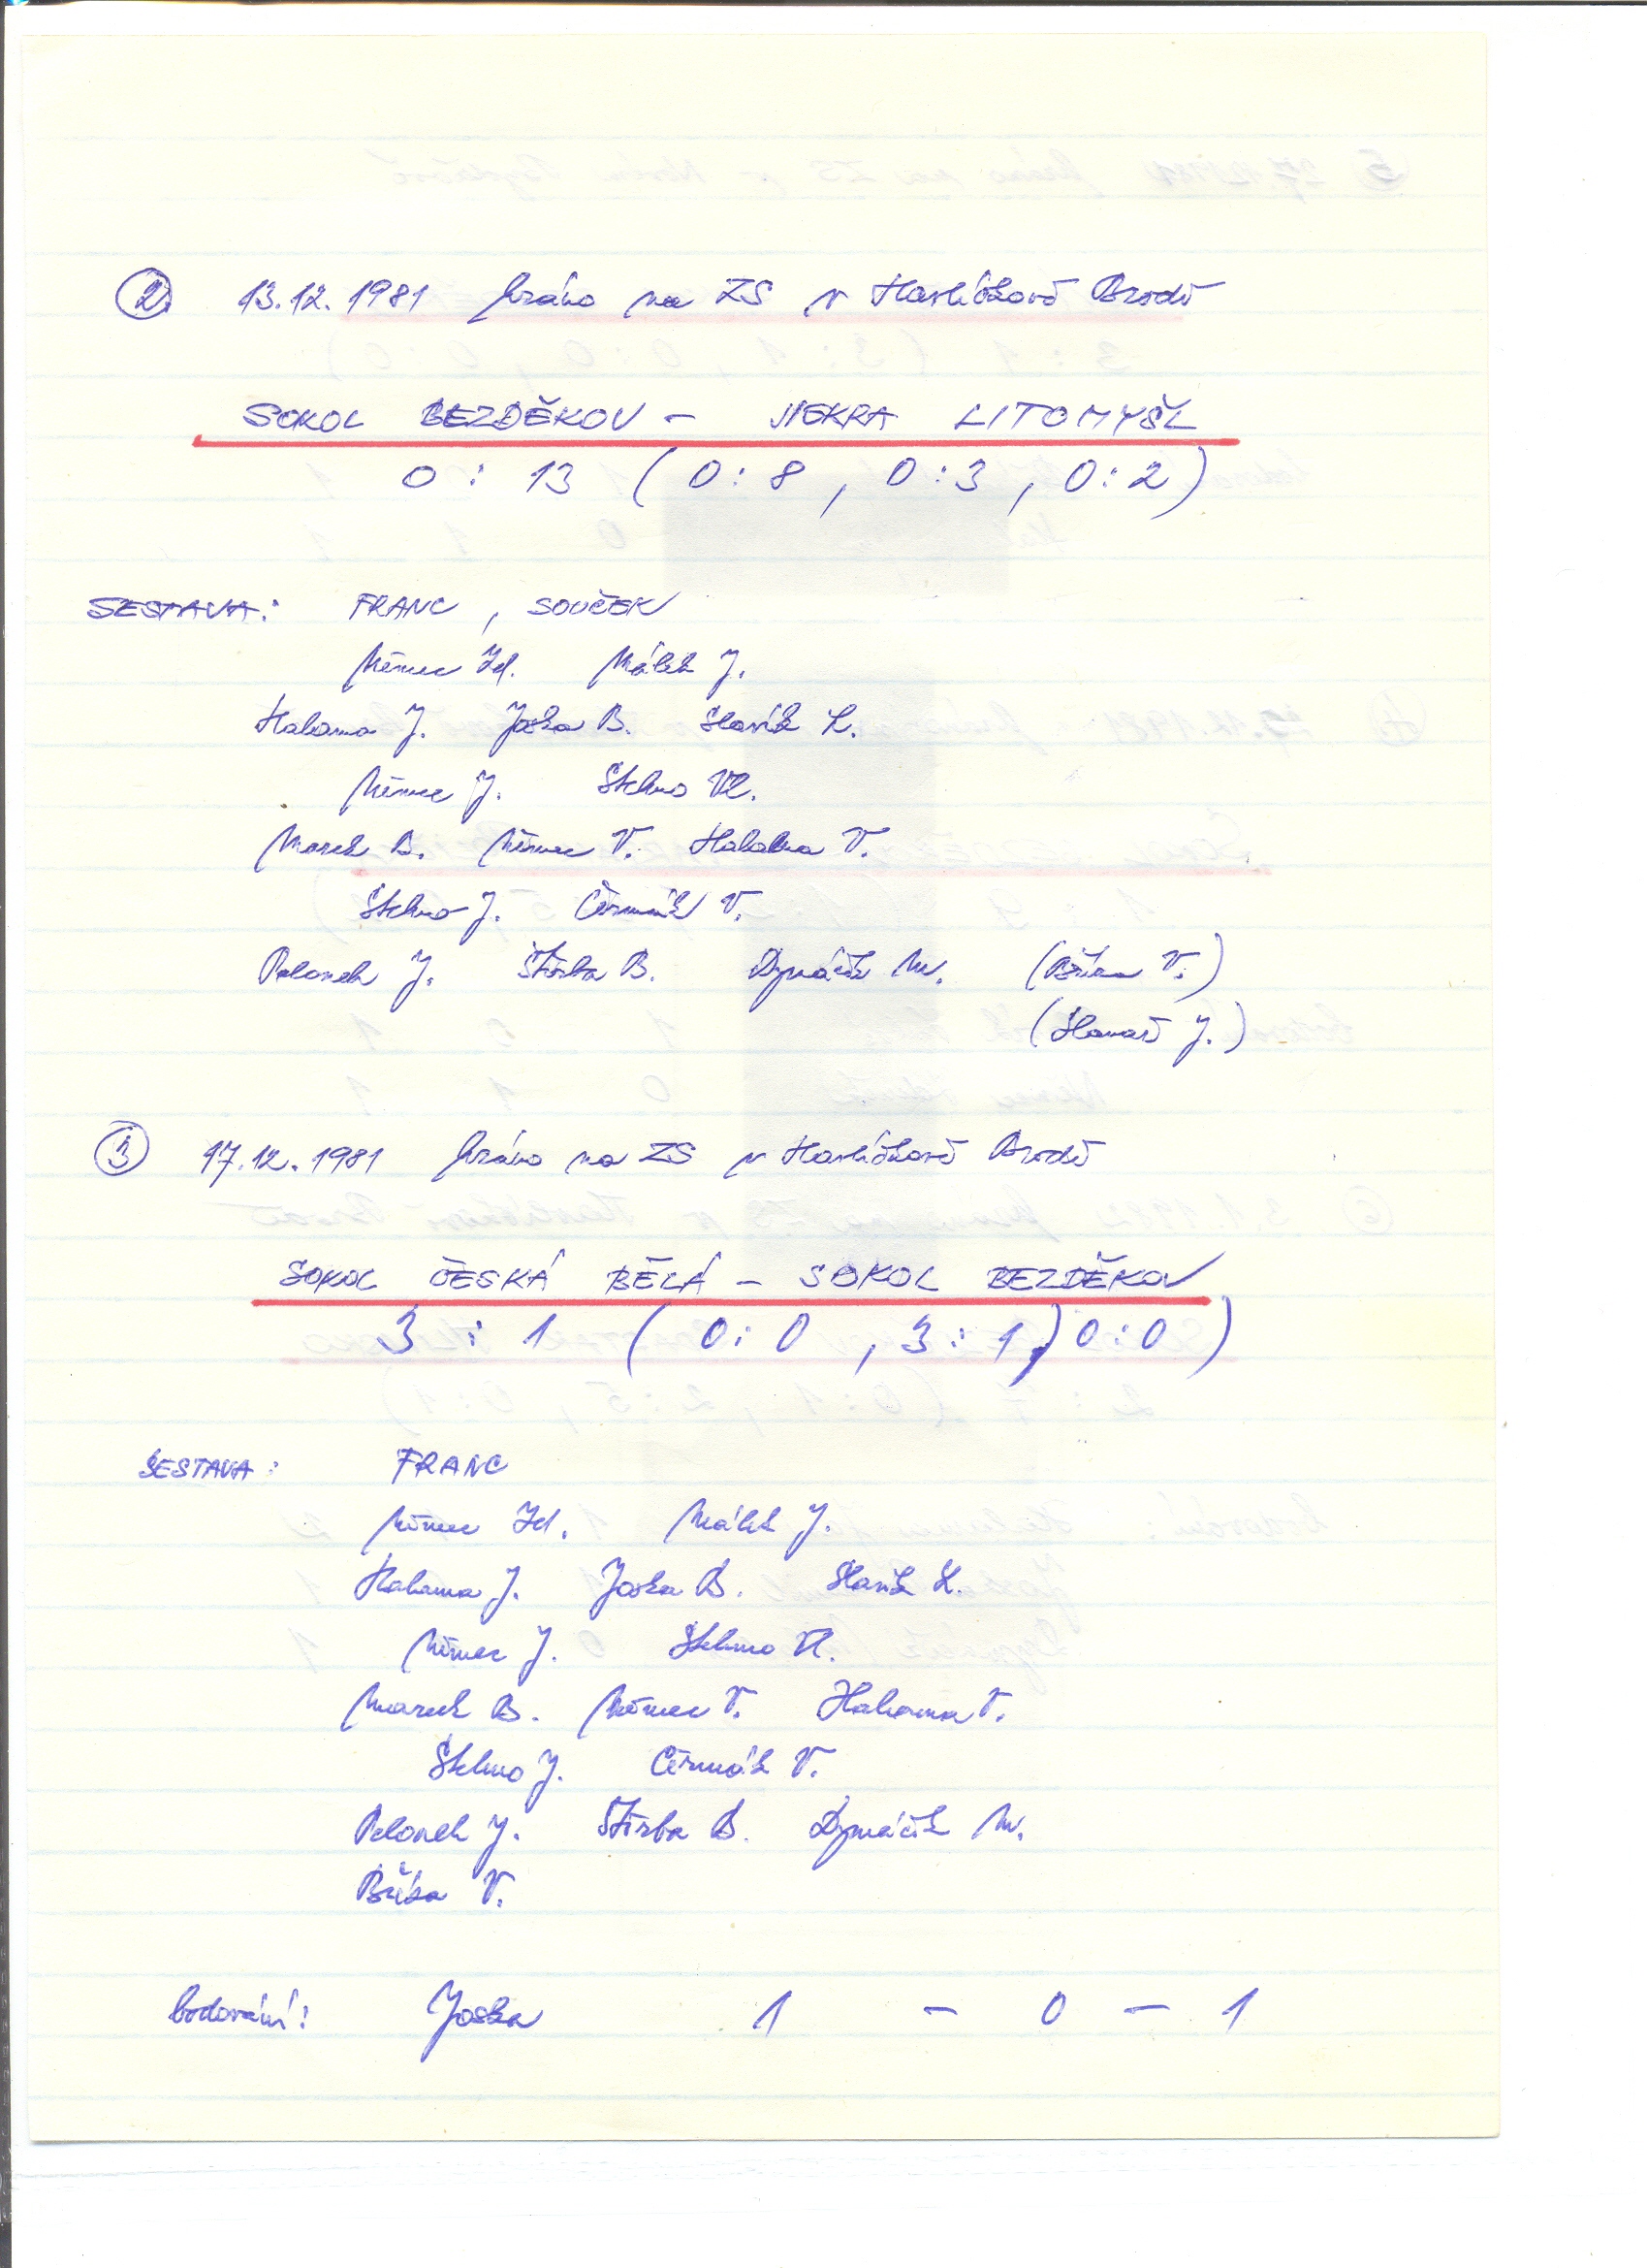 2. 13.12.1981 hráno na ZS v Havlíčkově Brodě
SOKOL BEZDĚKOV - JISKRA LITOMYŠL
0 : 13 ( 0:8 , 0:3 , 0:2 )
SESTAVA: FRANC , SOUČEK
Němec Zd. Málek J.
Halama J. Joska B. Slavík L.
Němec J. Stehno Vl.
Marek B. Němec V. Halama V.
Stehno J. Čermák V.
Pelouch J. Štěrba B. Dymáčik M. ( V.)
( J.)
3 17.12.1981 hráno na ZS v Havlíčkově Brodě
SOKOL ČESKÁ BĚLÁ - SOKOL BEZDĚKOV
3 : 1 ( 0:0 , 3:1, 0:0 )
SESTAVA: FRANC
Němec Zd. Málek J.
Halama J. Joska B. Slavík L.
Němec J. Stehno Vl.
Marek B. Němec V. Halama V.
Stehno J. Čermák V.
Pelouch J. Štěrba B. Dymáčik M.
V.
bodování: Joska 1 - 0 - 1